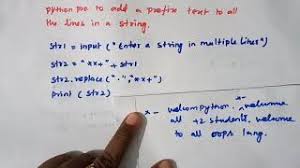 python pro to add a prefix text to all
the lines in a string.
str1 = input ("Enter a string in multiple lines")
str2 = "**+")
str2.replace (".", "**+")
print (str2)
x- welcompython. x- welcome
all +2 students. welcome
to all oops lang.